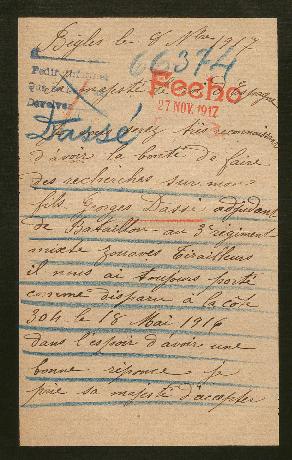 Bègles le 8 Nbre 1917
66374
Pedir
Devolver
Fecho
27 NOV. 1917
sa majesté le d'Espagne
Dassé
vous serez très reconnaissan
d'avoir la bonté de faire
des recherches sur mon
fils Gorges Dassé adjudant
de Bataillon au 3e régiment
mixte zouaves Tirailleurs
il nous ai toujours porté
comme disparu à la côte
304 le 18 Mai 1916
dans l'espoir d'avoir une
bonne réponce je
prie sa majesté d'accepter